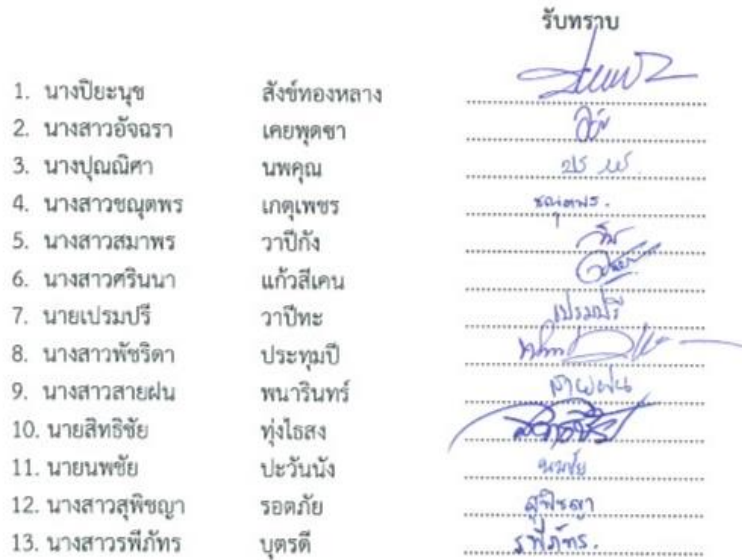 รับทราบ
1. นางปิยะนุช สังข์ทองหลาง
2. นางสาวอัจฉรา เคยพุดซา
3. นางปุณณิศา นพคุณ
4. นางสาวชณุตพร เกตุเพชร ชณุตพร.
5. นางสาวสมาพร วาปีกัง
6. นางสาวศรินนา แก้วสีเคน
7. นายเปรมปรี วาปีทะ เปรมปรี
8. นางสาวพัชริดา ประทุมปี
9. นางสาวสายฝน พนารินทร์ สายฝน
10. นายสิทธิชัย ทุ่งไธสง
11. นายนพชัย ปะวันนัง นพชัย
12. นางสาวสุพิชญา รอดภัย สุพิชญา
13. นางสาวรพีภัทร บุตรดี รพีภัทร.